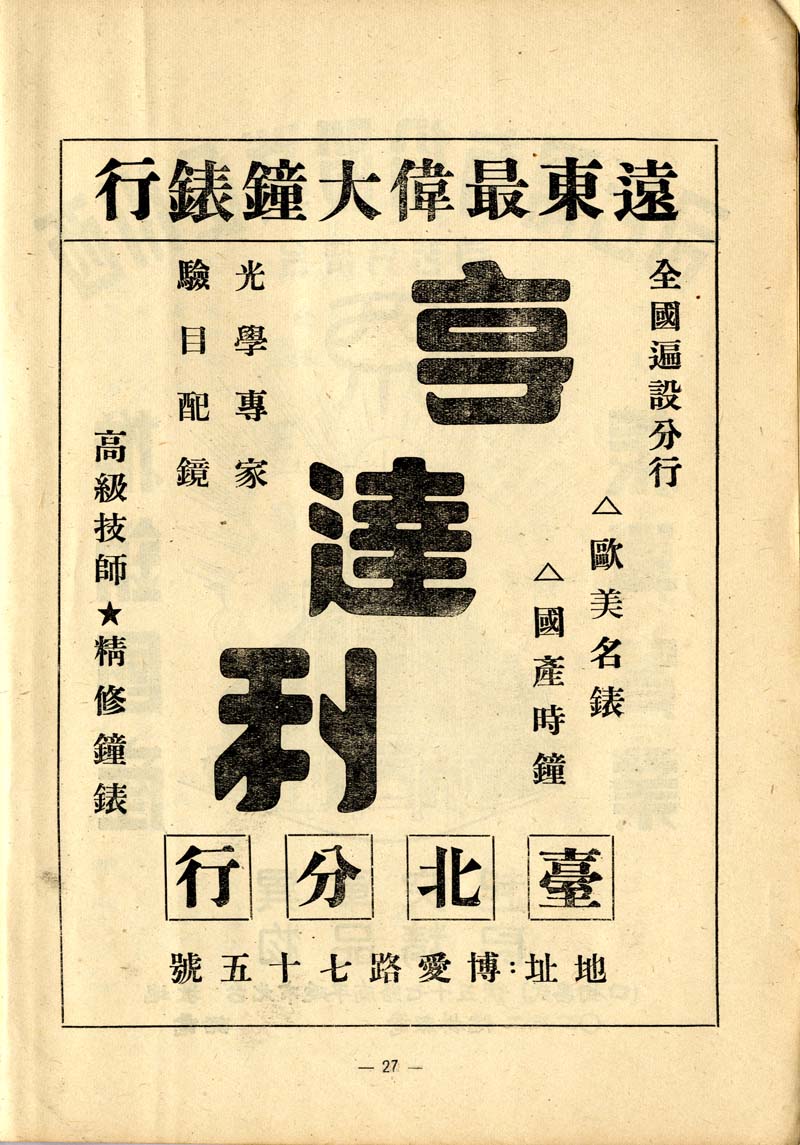 遠東最偉大鐘錶行
全國遍設分行
△歐美名錶
△國產時鐘
亨達利
光學專家
驗目配鏡
高級技師★精修鐘錶
臺北分行
地址：博愛路七十五號
— 27 —